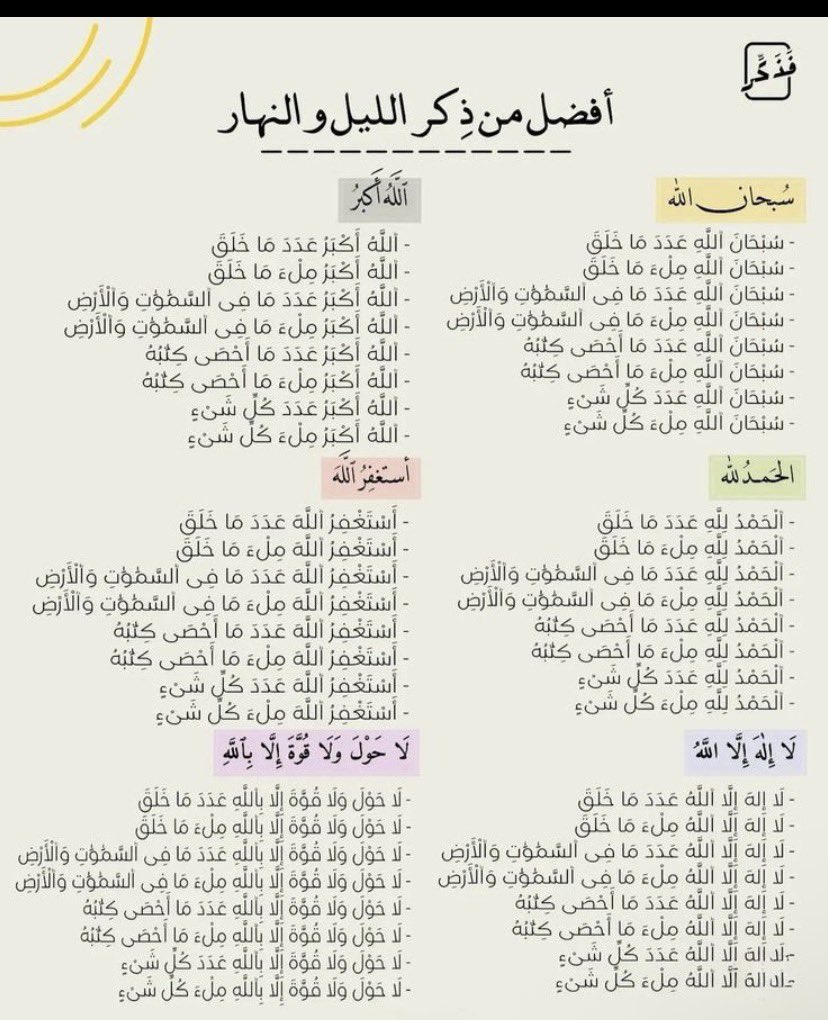 فَذَكِّر
أفضل من ذِكر الليل و النهار
سُبحان الله
- سُبْحَانَ ٱللَّهِ عَدَدَ مَا خَلَقَ
- سُبْحَانَ ٱللَّهِ مِلْءَ مَا خَلَقَ
- سُبْحَانَ ٱللَّهِ عَدَدَ مَا فِى ٱلسَّمَٰوَٰتِ وَٱلْأَرْضِ
- سُبْحَانَ ٱللَّهِ مِلْءَ مَا فِى ٱلسَّمَٰوَٰتِ وَٱلْأَرْضِ
- سُبْحَانَ ٱللَّهِ عَدَدَ مَا أَحْصَى كِتَٰبُهُ
- سُبْحَانَ ٱللَّهِ مِلْءَ مَا أَحْصَى كِتَٰبُهُ
- سُبْحَانَ ٱللَّهِ عَدَدَ كُلِّ شَىْءٍ
- سُبْحَانَ ٱللَّهِ مِلْءَ كُلِّ شَىْءٍ
ٱللَّهُ أَكْبَرُ
- ٱللَّهُ أَكْبَرُ عَدَدَ مَا خَلَقَ
- ٱللَّهُ أَكْبَرُ مِلْءَ مَا خَلَقَ
- ٱللَّهُ أَكْبَرُ عَدَدَ مَا فِى ٱلسَّمَٰوَٰتِ وَٱلْأَرْضِ
- ٱللَّهُ أَكْبَرُ مِلْءَ مَا فِى ٱلسَّمَٰوَٰتِ وَٱلْأَرْضِ
- ٱللَّهُ أَكْبَرُ عَدَدَ مَا أَحْصَى كِتَٰبُهُ
- ٱللَّهُ أَكْبَرُ مِلْءَ مَا أَحْصَى كِتَٰبُهُ
- ٱللَّهُ أَكْبَرُ عَدَدَ كُلِّ شَىْءٍ
- ٱللَّهُ أَكْبَرُ مِلْءَ كُلِّ شَىْءٍ
الحَمدُ لله
- ٱلْحَمْدُ لِلَّهِ عَدَدَ مَا خَلَقَ
- ٱلْحَمْدُ لِلَّهِ مِلْءَ مَا خَلَقَ
- ٱلْحَمْدُ لِلَّهِ عَدَدَ مَا فِى ٱلسَّمَٰوَٰتِ وَٱلْأَرْضِ
- ٱلْحَمْدُ لِلَّهِ مِلْءَ مَا فِى ٱلسَّمَٰوَٰتِ وَٱلْأَرْضِ
- ٱلْحَمْدُ لِلَّهِ عَدَدَ مَا أَحْصَى كِتَٰبُهُ
- ٱلْحَمْدُ لِلَّهِ مِلْءَ مَا أَحْصَى كِتَٰبُهُ
- ٱلْحَمْدُ لِلَّهِ عَدَدَ كُلِّ شَىْءٍ
- ٱلْحَمْدُ لِلَّهِ مِلْءَ كُلِّ شَىْءٍ
أَستَغفِرُ ٱللَّهَ
- أَسْتَغْفِرُ ٱللَّهَ عَدَدَ مَا خَلَقَ
- أَسْتَغْفِرُ ٱللَّهَ مِلْءَ مَا خَلَقَ
- أَسْتَغْفِرُ ٱللَّهَ عَدَدَ مَا فِى ٱلسَّمَٰوَٰتِ وَٱلْأَرْضِ
- أَسْتَغْفِرُ ٱللَّهَ مِلْءَ مَا فِى ٱلسَّمَٰوَٰتِ وَٱلْأَرْضِ
- أَسْتَغْفِرُ ٱللَّهَ عَدَدَ مَا أَحْصَى كِتَٰبُهُ
- أَسْتَغْفِرُ ٱللَّهَ مِلْءَ مَا أَحْصَى كِتَٰبُهُ
- أَسْتَغْفِرُ ٱللَّهَ عَدَدَ كُلِّ شَىْءٍ
- أَسْتَغْفِرُ ٱللَّهَ مِلْءَ كُلِّ شَىْءٍ
لَا إِلَٰهَ إِلَّا اللَّهُ
- لَا إِلهَ إِلَّا ٱللَّهُ عَدَدَ مَا خَلَقَ
- لَا إِلهَ إِلَّا ٱللَّهُ مِلْءَ مَا خَلَقَ
- لَا إِلهَ إِلَّا ٱللَّهُ عَدَدَ مَا فِى ٱلسَّمَٰوَٰتِ وَٱلْأَرْضِ
- لَا إِلهَ إِلَّا ٱللَّهُ مِلْءَ مَا فِى ٱلسَّمَٰوَٰتِ وَٱلْأَرْضِ
- لَا إِلهَ إِلَّا ٱللَّهُ عَدَدَ مَا أَحْصَى كِتَٰبُهُ
- لَا إِلهَ إِلَّا ٱللَّهُ مِلْءَ مَا أَحْصَى كِتَٰبُهُ
- لَا إِلهَ إِلَّا ٱللَّهُ عَدَدَ كُلِّ شَىْءٍ
- لَا إِلهَ إِلَّا ٱللَّهُ مِلْءَ كُلِّ شَىْءٍ
لَا حَوْلَ وَلَا قُوَّةَ إِلَّا بِٱللَّهِ
- لَا حَوْلَ وَلَا قُوَّةَ إِلَّا بِٱللَّهِ عَدَدَ مَا خَلَقَ
- لَا حَوْلَ وَلَا قُوَّةَ إِلَّا بِٱللَّهِ مِلْءَ مَا خَلَقَ
- لَا حَوْلَ وَلَا قُوَّةَ إِلَّا بِٱللَّهِ عَدَدَ مَا فِى ٱلسَّمَٰوَٰتِ وَٱلْأَرْضِ
- لَا حَوْلَ وَلَا قُوَّةَ إِلَّا بِٱللَّهِ مِلْءَ مَا فِى ٱلسَّمَٰوَٰتِ وَٱلْأَرْضِ
- لَا حَوْلَ وَلَا قُوَّةَ إِلَّا بِٱللَّهِ عَدَدَ مَا أَحْصَى كِتَٰبُهُ
- لَا حَوْلَ وَلَا قُوَّةَ إِلَّا بِٱللَّهِ مِلْءَ مَا أَحْصَى كِتَٰبُهُ
- لَا حَوْلَ وَلَا قُوَّةَ إِلَّا بِٱللَّهِ عَدَدَ كُلِّ شَىْءٍ
- لَا حَوْلَ وَلَا قُوَّةَ إِلَّا بِٱللَّهِ مِلْءَ كُلِّ شَىْءٍ